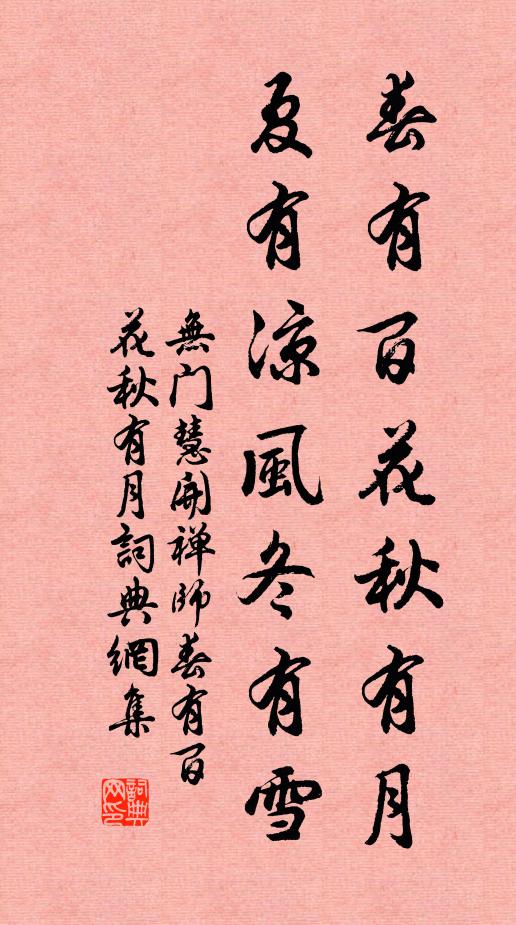 春有百花秋有月
夏有凉風冬有雪
無门慧開禅師春有百
花秋有月詞典網集
詞典
网印